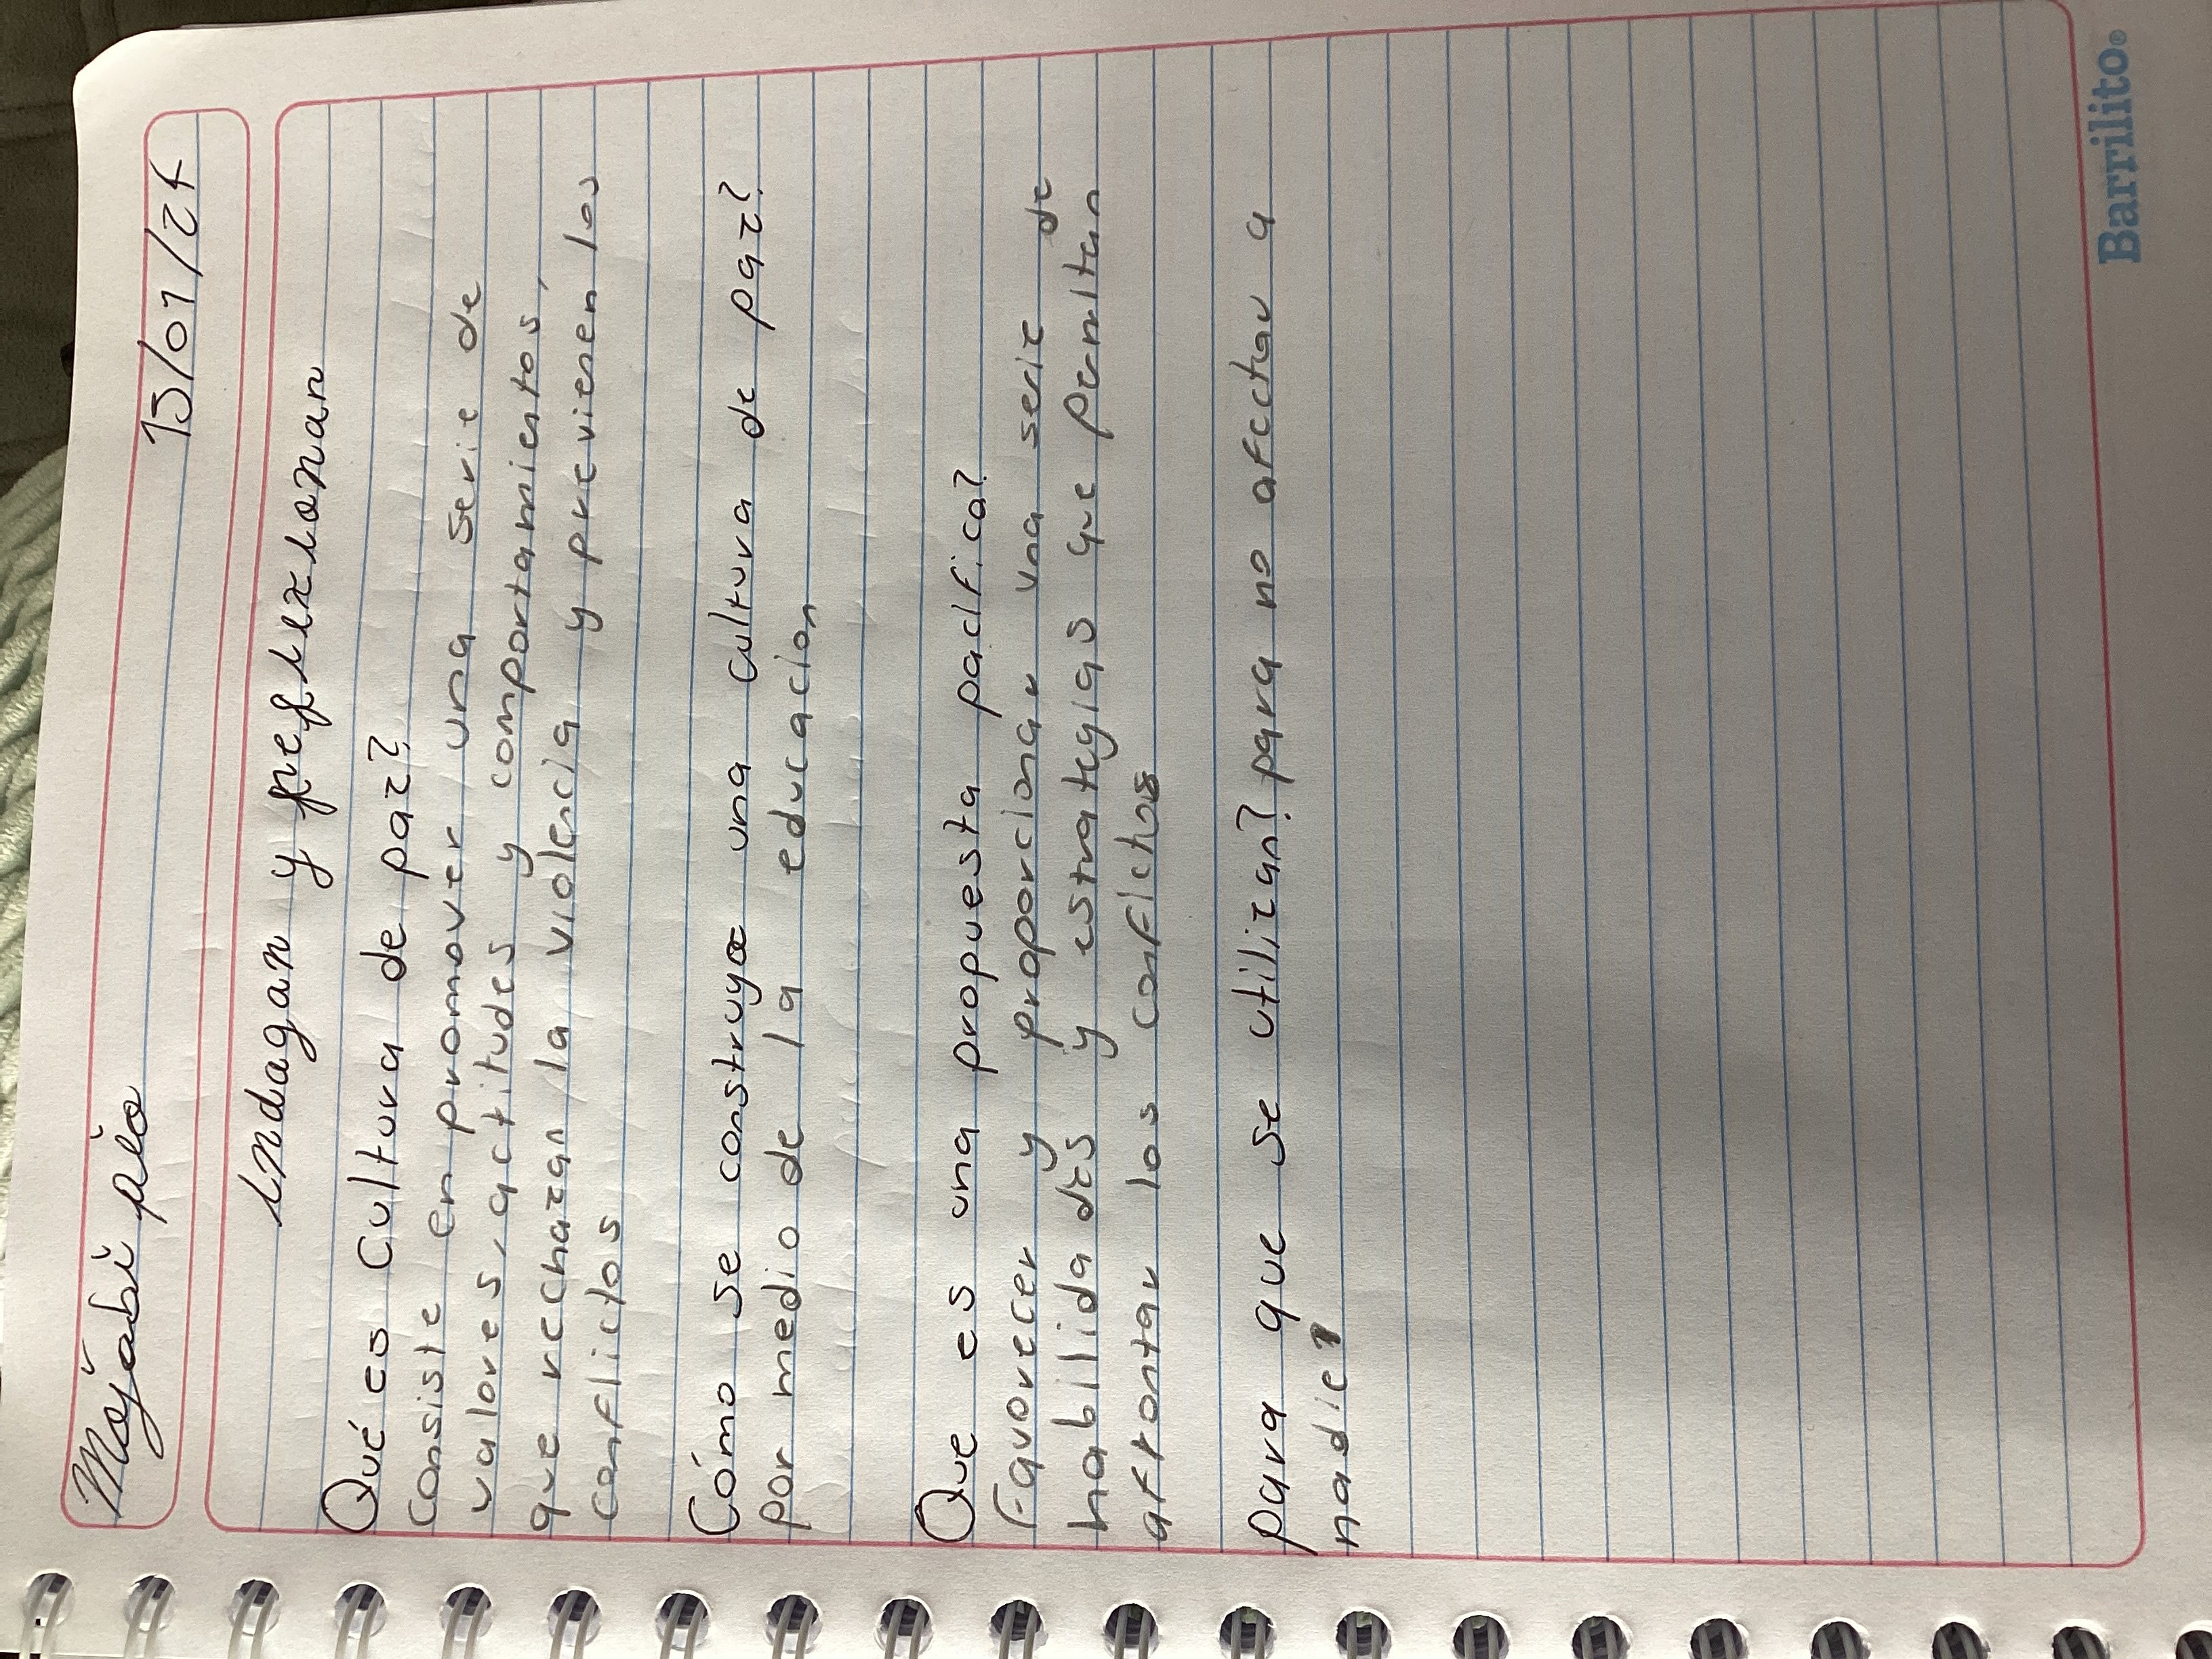 13/01/25
indagan y reflexionan
Qué es Cultura de paz?
Consiste en promover una serie de
valores, actitudes y comportamientos,
que rechazan la violencia y previenen los
conflictos
Cómo se construye una cultura de paz?
por medio de la educacion
Que es una propuesta pacifica?
Favorecer y proporcionar una serie de
habilidades y estrategias que permitan
afrontar los conflictos
para que se utilizan? para no afectar a
nadie
Barrilito®